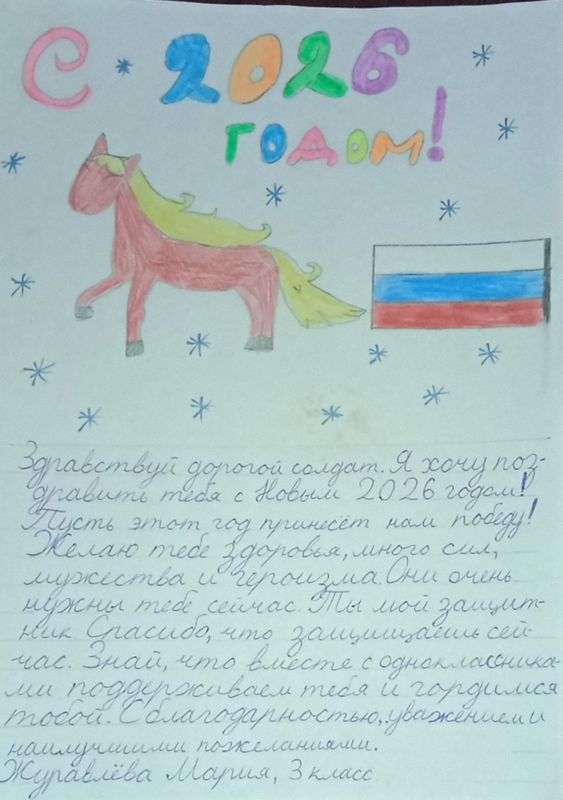 С 2026
годом!
Здравствуй дорогой солдат. Я хочу поз-
дравить тебя с Новым 2026 годом!
Пусть этот год принесёт нам победу!
Желаю тебе здоровья, много сил,
мужества и героизма. Они очень
нужны тебе сейчас. Ты мой защит-
ник. Спасибо, что защищаешь сей-
час. Знай, что вместе с одноклассника-
ми поддерживаем тебя и гордимся
тобой. С благодарностью, уважением и
наилучшими пожеланиями.
Журавлёва Мария, 3 класс.